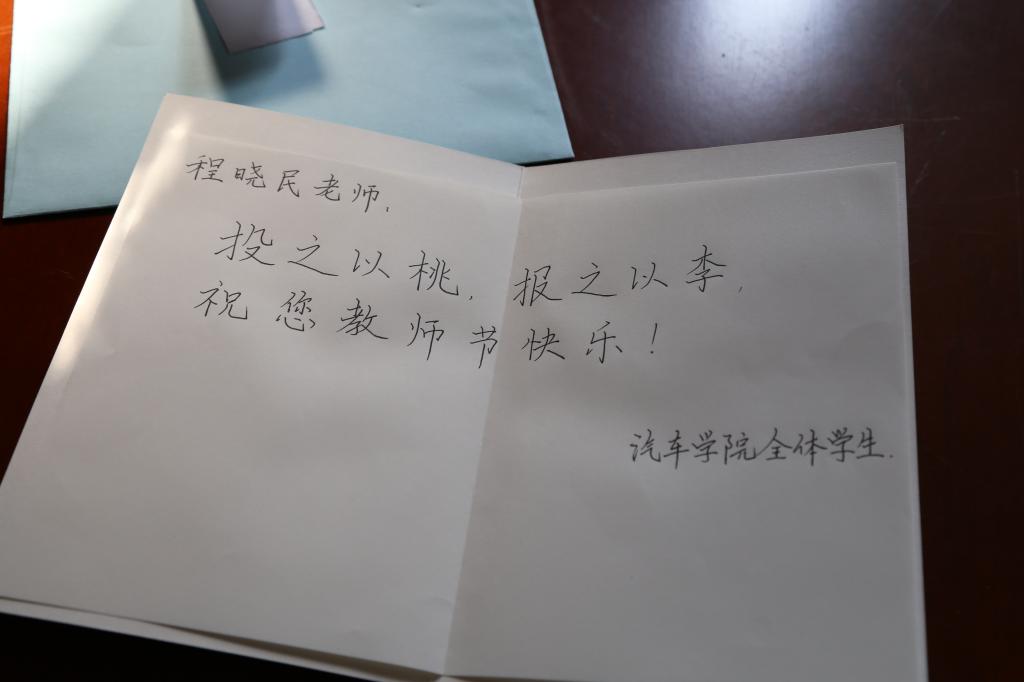 程晓民老师,
投之以桃,报之以李,
祝您教师节快乐!
汽车学院全体学生.